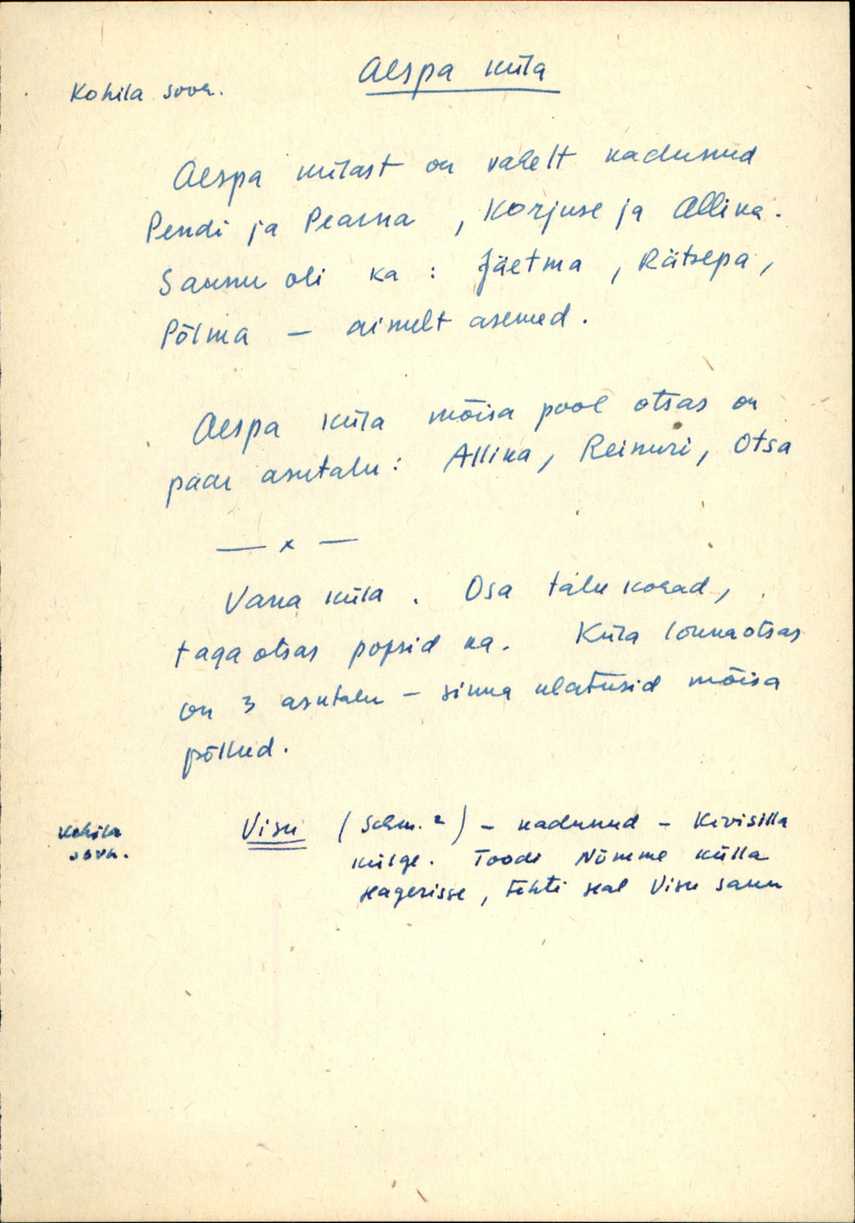 Aespa küla
Kohila sovh.
Aespa külast on vahelt kadunud
Pendi ja Pearna, Korjuse ja Allika.
Saunu oli ka: Jäetma, Rätsepa,
Põlma — ainult asemed.
Aespa küla mõisa pool otsas on
paar asutalu: Allika, Reinuri, Otsa
— x —
Vana küla. Osa talu kohad,
taga otsas popsid ka. Küla lõunaotsas
on 3 asutalu – sinna ulatusid mõisa
põllud.
Kohila
sovh.
Visu (Schm. 2) – kadunud – Kivisilla
külge. Toodi Nõmme külla
Hagerisse, tehti seal Visu saun